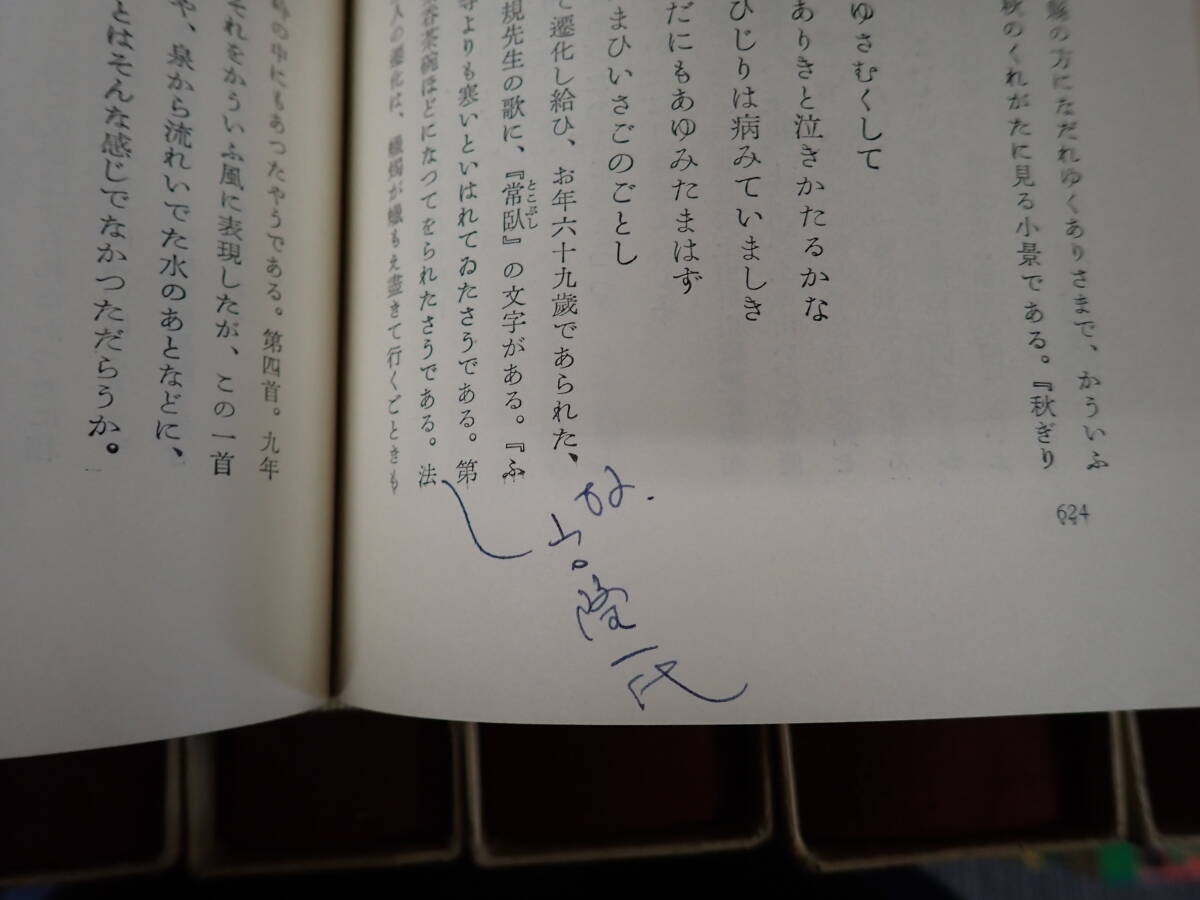 縣の方になだれゆくありさまで、かういふ
秋のくれがたに見る小景である。『秋ぎり
ゆさむくして
ありきと泣きかたるかな
ひじりは病みていましき
だにもあゆみたまはず
まひいさごのごとし
て遷化し給ひ、お年六十九歳であられた、
規先生の歌に、『常臥』の文字がある。『ふ
とこぶし
寺よりも寒いといはれてゐたさうである。第
谷茶碗ほどになつてをられたさうである。法
人の遷化は、蠟燭が蠟もえ盡きて行くごときも
の中にもあつたやうである。第四首。九年
それをかういふ風に表現したが、この一首
や、泉から流れいでた水のあとなどに、
とはそんな感じでなかつただらうか。
624
山口隆一氏